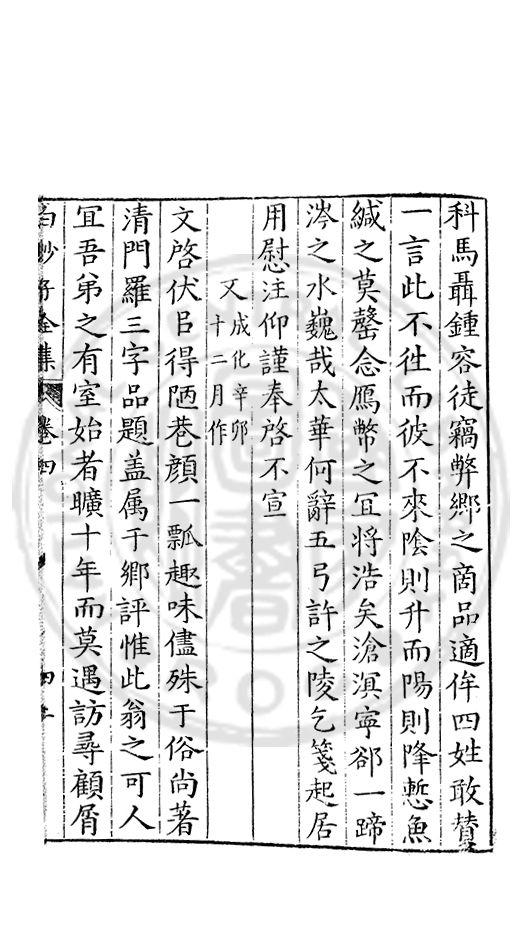 科馬聶鍾容徒竊弊鄉之啇品適侔四姓敢贊
一言此不徃而彼不來隂則升而陽則降慙魚
緘之莫罄念鴈幣之冝將浩矣滄溟寧郤一蹄
涔之水巍哉太華何辭五弓許之陵乞箋起居
用慰注仰謹奉啓不宣
又成化辛卯
十二月作
文啓伏㠯得陋巷顏一瓢趣味儘殊于俗尚著
清門羅三字品題盖属于鄉評惟此翁之可人
冝吾弟之有室始者曠十年而莫遇訪尋顧屑
白沙子全集 卷四